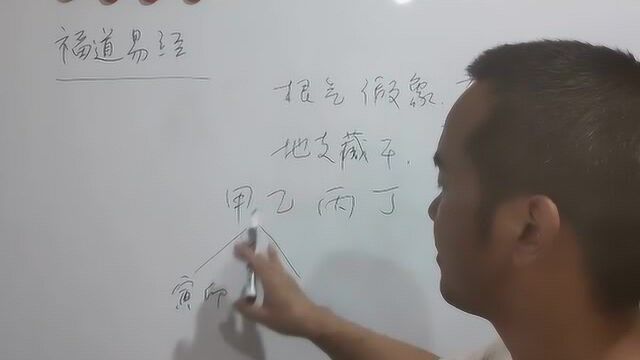 福道易经
根气假象.
地支藏干,
甲乙丙丁
寅卯